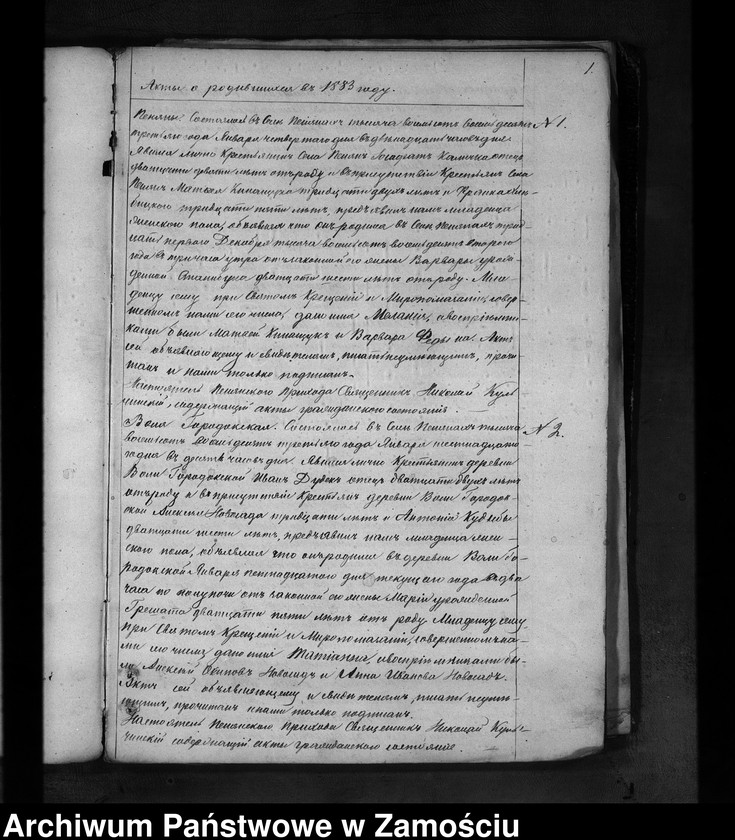 1.
Акты о родившихся въ 1883 году.
Пеняны. Состоялось въ селе Пенянахъ тысяча восемьсотъ восемьдесятъ № 1.
третьяго года Января четвертаго дня въ двенадцать часовъ дня.
Явился лично Крестьянинъ села Пенянъ отецъ
двадцати девяти летъ отъ роду и въ присутствіи Крестьянъ села
Пенянъ Матвея тридцати двухъ летъ и
тридцати пяти летъ, предъявилъ намъ младенца
женскаго пола, объявляя что онъ родился въ селе Пенянахъ трид-
цать перваго Декабря тысяча восемьсотъ восемьдесятъ втораго
года въ три часа утра отъ законной его жены Варвары урож-
денной двадцати шести летъ отъ роду. Мла-
денцу сему при Святомъ Крещеніи и Миропомазаніи, совер-
шенномъ нами сего числа, дано имя Меланія, а воспріемни-
ками были Матвей и Варвара Актъ
сей объявляющему и свидетелямъ, писать неумеющимъ, прочи-
танъ и нами только подписанъ.
Настоятель Пенянскаго Прихода Священникъ Николай Куль-
чинскій, содержащій акты гражданскаго состоянія.
Воля Городокская. Состоялось въ селе Пенянахъ тысяча № 2.
восемьсотъ восемьдесятъ третьяго года Января шестнадцата-
го дня въ десять часовъ дня. Явился лично Крестьянинъ деревни
Воли Городокской Иванъ Дудокъ отецъ двадцати двухъ летъ
отъ роду и въ присутствіи Крестьянъ деревни Воли Городок-
ской Алексея Новосада тридцати летъ и Антонія
двадцати шести летъ, предъявилъ намъ младенца жен-
скаго пола, объявляя что онъ родился въ деревни Воли Го-
родокской Января пятнадцатаго дня текущаго года въ два
часа по полуночи отъ законной его жены Маріи урожденной
двадцати пяти летъ отъ роду. Младенцу сему
при Святомъ Крещеніи и Миропомазаніи, совершенномъ на-
ми сего числа, дано имя Татіанна, а воспріемниками бы-
ли Алексей Новосадъ и Анна Иванова Новосадъ.
Актъ сей объявляющему и свидетелямъ, писать неуме-
ющимъ, прочитанъ и нами только подписанъ.
Настоятель Пенянскаго Прихода Священникъ Николай Куль-
чинскій содержащій акты гражданскаго состоянія.
Archiwum Państwowe w Zamościu